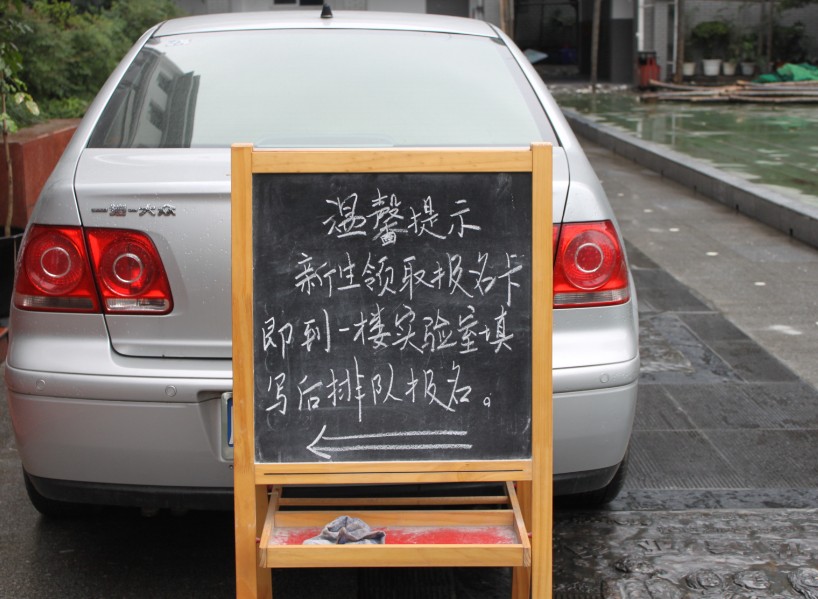 一汽-大众
温馨提示
新生领取报名卡
即到一楼实验室填
写后排队报名。